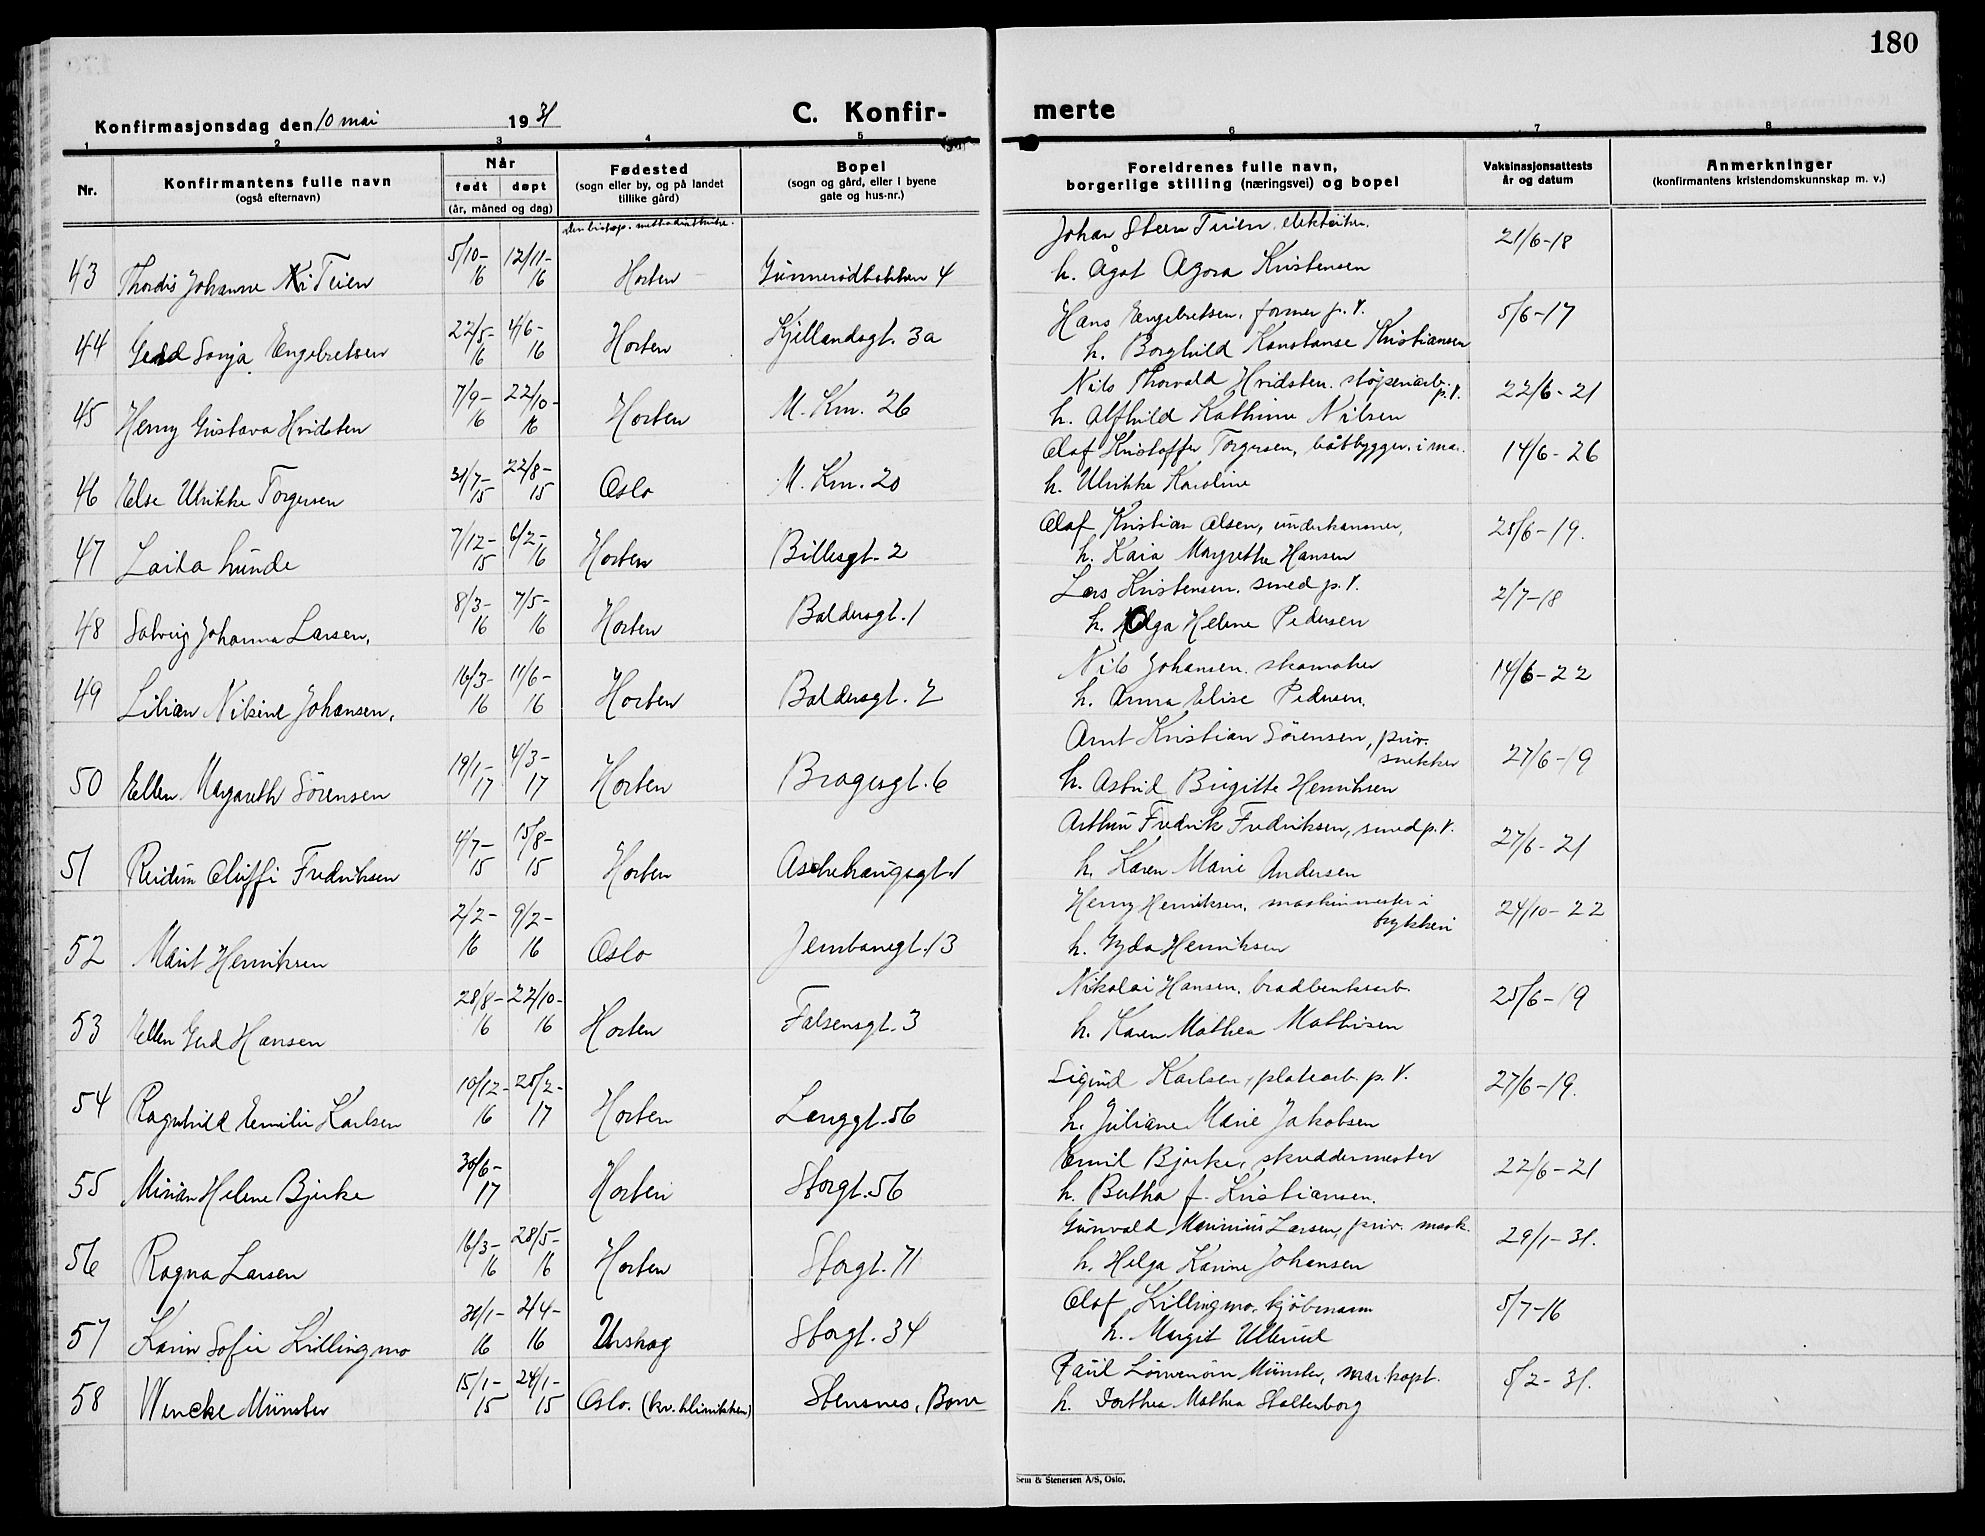 180
Konfirmasjonsdag den 10 mai 1931
C. Konfir-
merte
1 2 3 4 5 6 7 8
Nr.
Konfirmantens fulle navn
(også efternavn)
Når
født døpt
(år, måned og dag)
Fødested
(sogn eller by, og på landet
tillike gård)
Bopel
(sogn og gård, eller i byene
gate og hus-nr.)
Foreldrenes fulle navn,
borgerlige stilling (næringsvei) og bopel
Vaksinasjonsattests
år og datum
Anmerkninger
(konfirmantens kristendomskunnskap m. v.)
Johan Steen Teien, elektriker.
43 Thordis Johanne Teien 5/10-16 12/11-16 Horten Gunnerødbakken 4 h. Ågot Agora Kristensen 21/6-18
Hans Engebretsen, former p. V.
44 Gerd Sonja Engebretsen 22/5-16 4/6-16 Horten Kjellandsgt. 3a h. Borghild Konstanse Kristiansen 5/6-17
Nils Thorvald Hvidsten. støperiarb. p. V.
45 Henny Gustava Hvidsten 7/9-16 22/10-16 Horten M. Km. 26 h. Alfhild Kathinne Nilsen 22/6-21
Olaf Kristoffer Torgersen, båtbygger i mar.
46 Else Ulrikke Torgersen 31/7-15 22/8-15 Oslo M. Km. 20 h. Ulrikke Karoline 14/6-26
Olaf Kristian Olsen, underkanoner,
47 Laila Lunde 7/12-15 6/2-16 Horten Billesgt. 2 h. Kaia Margrethe Hansen 25/6-19.
Lars Kristensen. smed p. V.
48 Solveig Johanna Larsen, 8/3-16 7/5-16 Horten Baldersgt. 1 h. Olga Helene Pedersen 2/7-18
Nils Johansen. skomaker
49 Lilian Nilsine Johansen, 16/3-16 11/6-16 Horten Baldersgt. 2 h. Anna Elise Pedersen. 14/6-22
Arnt Kristian Sörensen, priv. snekker
50 Ellen Margareth Sörensen 19/1-17 4/3-17 Horten Bragesgt. 6 h. Astrid Birgitte Henriksen 27/6-19
Arthur Fredrik Fredriksen, smed p. V.
51 Reidun Oluffi Fredriksen 4/7-15 15/8-15 Horten Aschehaugsgt. 1 h. Karen Marie Andersen 27/6-21
Henry Henriksen, maskinmester i trykkeri
52 Marit Henriksen 2/2-16 9/2-16 Oslo Jernbanegt. 13 h. Gyda Henriksen 24/10-22
Nikolai Hansen, bradbenkarb.
53 Ellen Gerd Hansen 28/8-16 22/10-16 Horten Falsensgt. 3 h. Karen Mathea Mathisen 25/6-19
Sigurd Karlsen, platearb. p. V.
54 Ragnhild Emilie Karlsen 10/12-16 25/2-17 Horten Langgt. 56 h. Juliane Marie Jakobsen 27/6-19.
Emil Bjerke, skreddermester
55 Mirian Helene Bjerke 30/6-17 Horten Storgt. 56 h. Bertha f. Kristiansen. 22/6-21
Gunvald Marinius Larsen, priv. mask.
56 Ragna Larsen 16/3-16 28/5-16 Horten Storgt. 71 h. Helga Karine Johansen 29/1-31.
Olaf Killingmo, kjöbmann
57 Karin Sofie Killingmo 30/1-16 2/4-16 Urskog Storgt. 34 h. Margit Ullerud 5/7-16
Paul Lövenörn Münster, mar. kapt.
58 Wencke Münster 15/1-15 24/1-15 Oslo. (kv. klinikken) Stensnes, Borre h. Dorthea Mathea Stoltenborg 5/2-31.
Sem & Stenersen A/S, Oslo.